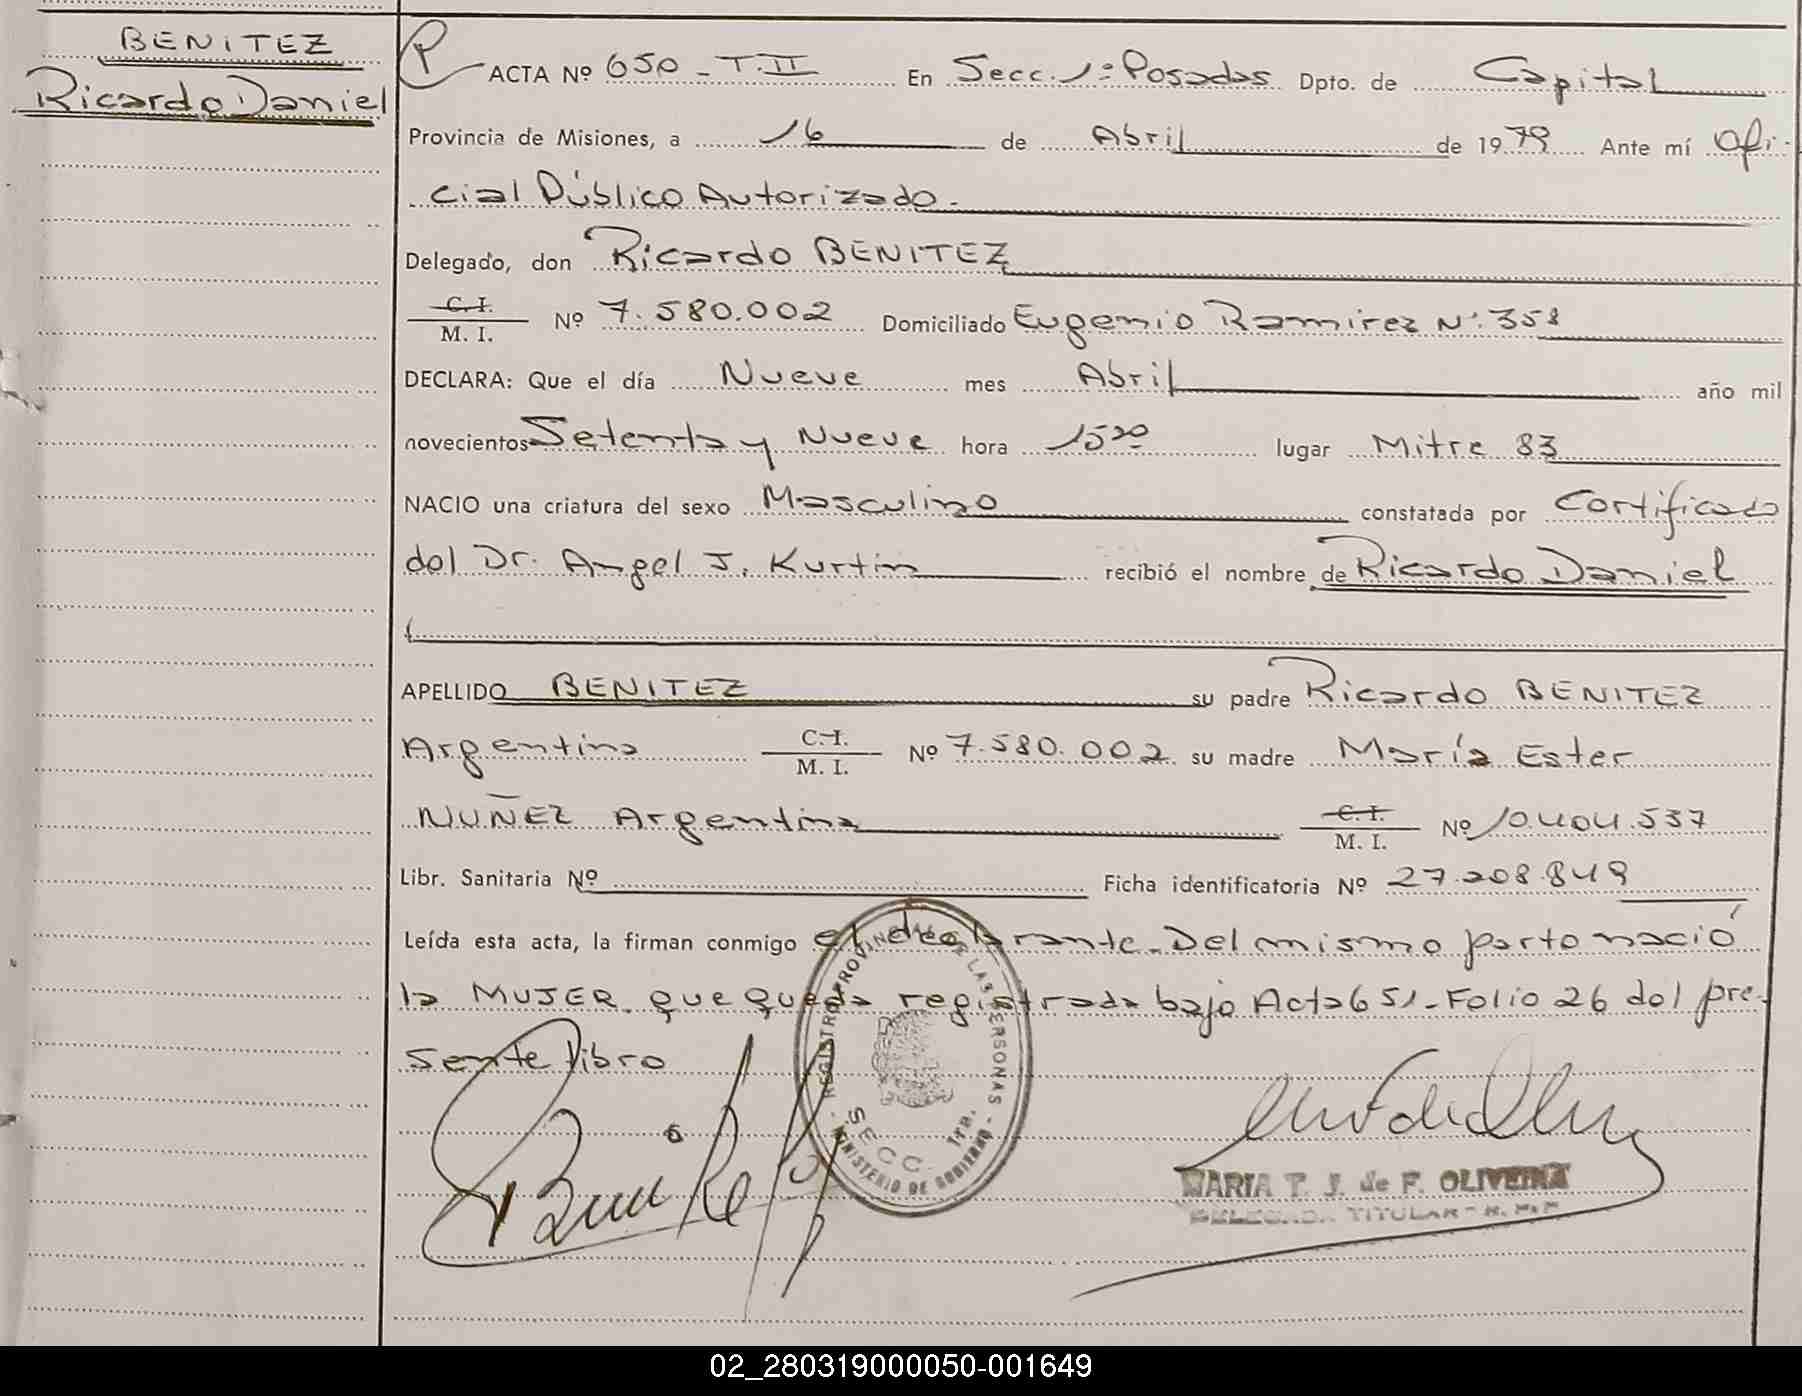 BENITEZ
Ricardo Daniel
ACTA Nº 650 - T. II En Secc. 1º Posadas Dpto. de Capital
Provincia de Misiones, a 16 de Abril de 1979 Ante mí Ofi-
cial Público Autorizado.-
Delegado, don Ricardo BENITEZ
C. I.
M. I. Nº 7.580.002 Domiciliado Eugenio Ramirez Nº 358
DECLARA: Que el día Nueve mes Abril año mil
novecientos Setenta y Nueve hora 15 20 lugar Mitre 83
NACIO una criatura del sexo Masculino constatada por Certificado
del Dr. Angel J. Kurtin recibió el nombre de Ricardo Daniel
APELLIDO BENITEZ su padre Ricardo BENITEZ
Argentino C. I.
M. I. Nº 7.580.002 su madre María Ester
NUÑEZ Argentina C. I.
M. I. Nº 10.404.537
Libr. Sanitaria Nº Ficha identificatoria Nº 27.208.849
Leída esta acta, la firman conmigo el declarante. Del mismo parto nació
la MUJER que queda registrada bajo Acta 651 - Folio 26 del pre-
sente libro
REGISTRO PROVINCIAL DE LAS PERSONAS - MINISTERIO DE GOBIERNO -
SECC. 1ra.
MARIA T. J. de F. OLIVEIRA
DELEGADA TITULAR - R. P. P.
02_280319000050-001649